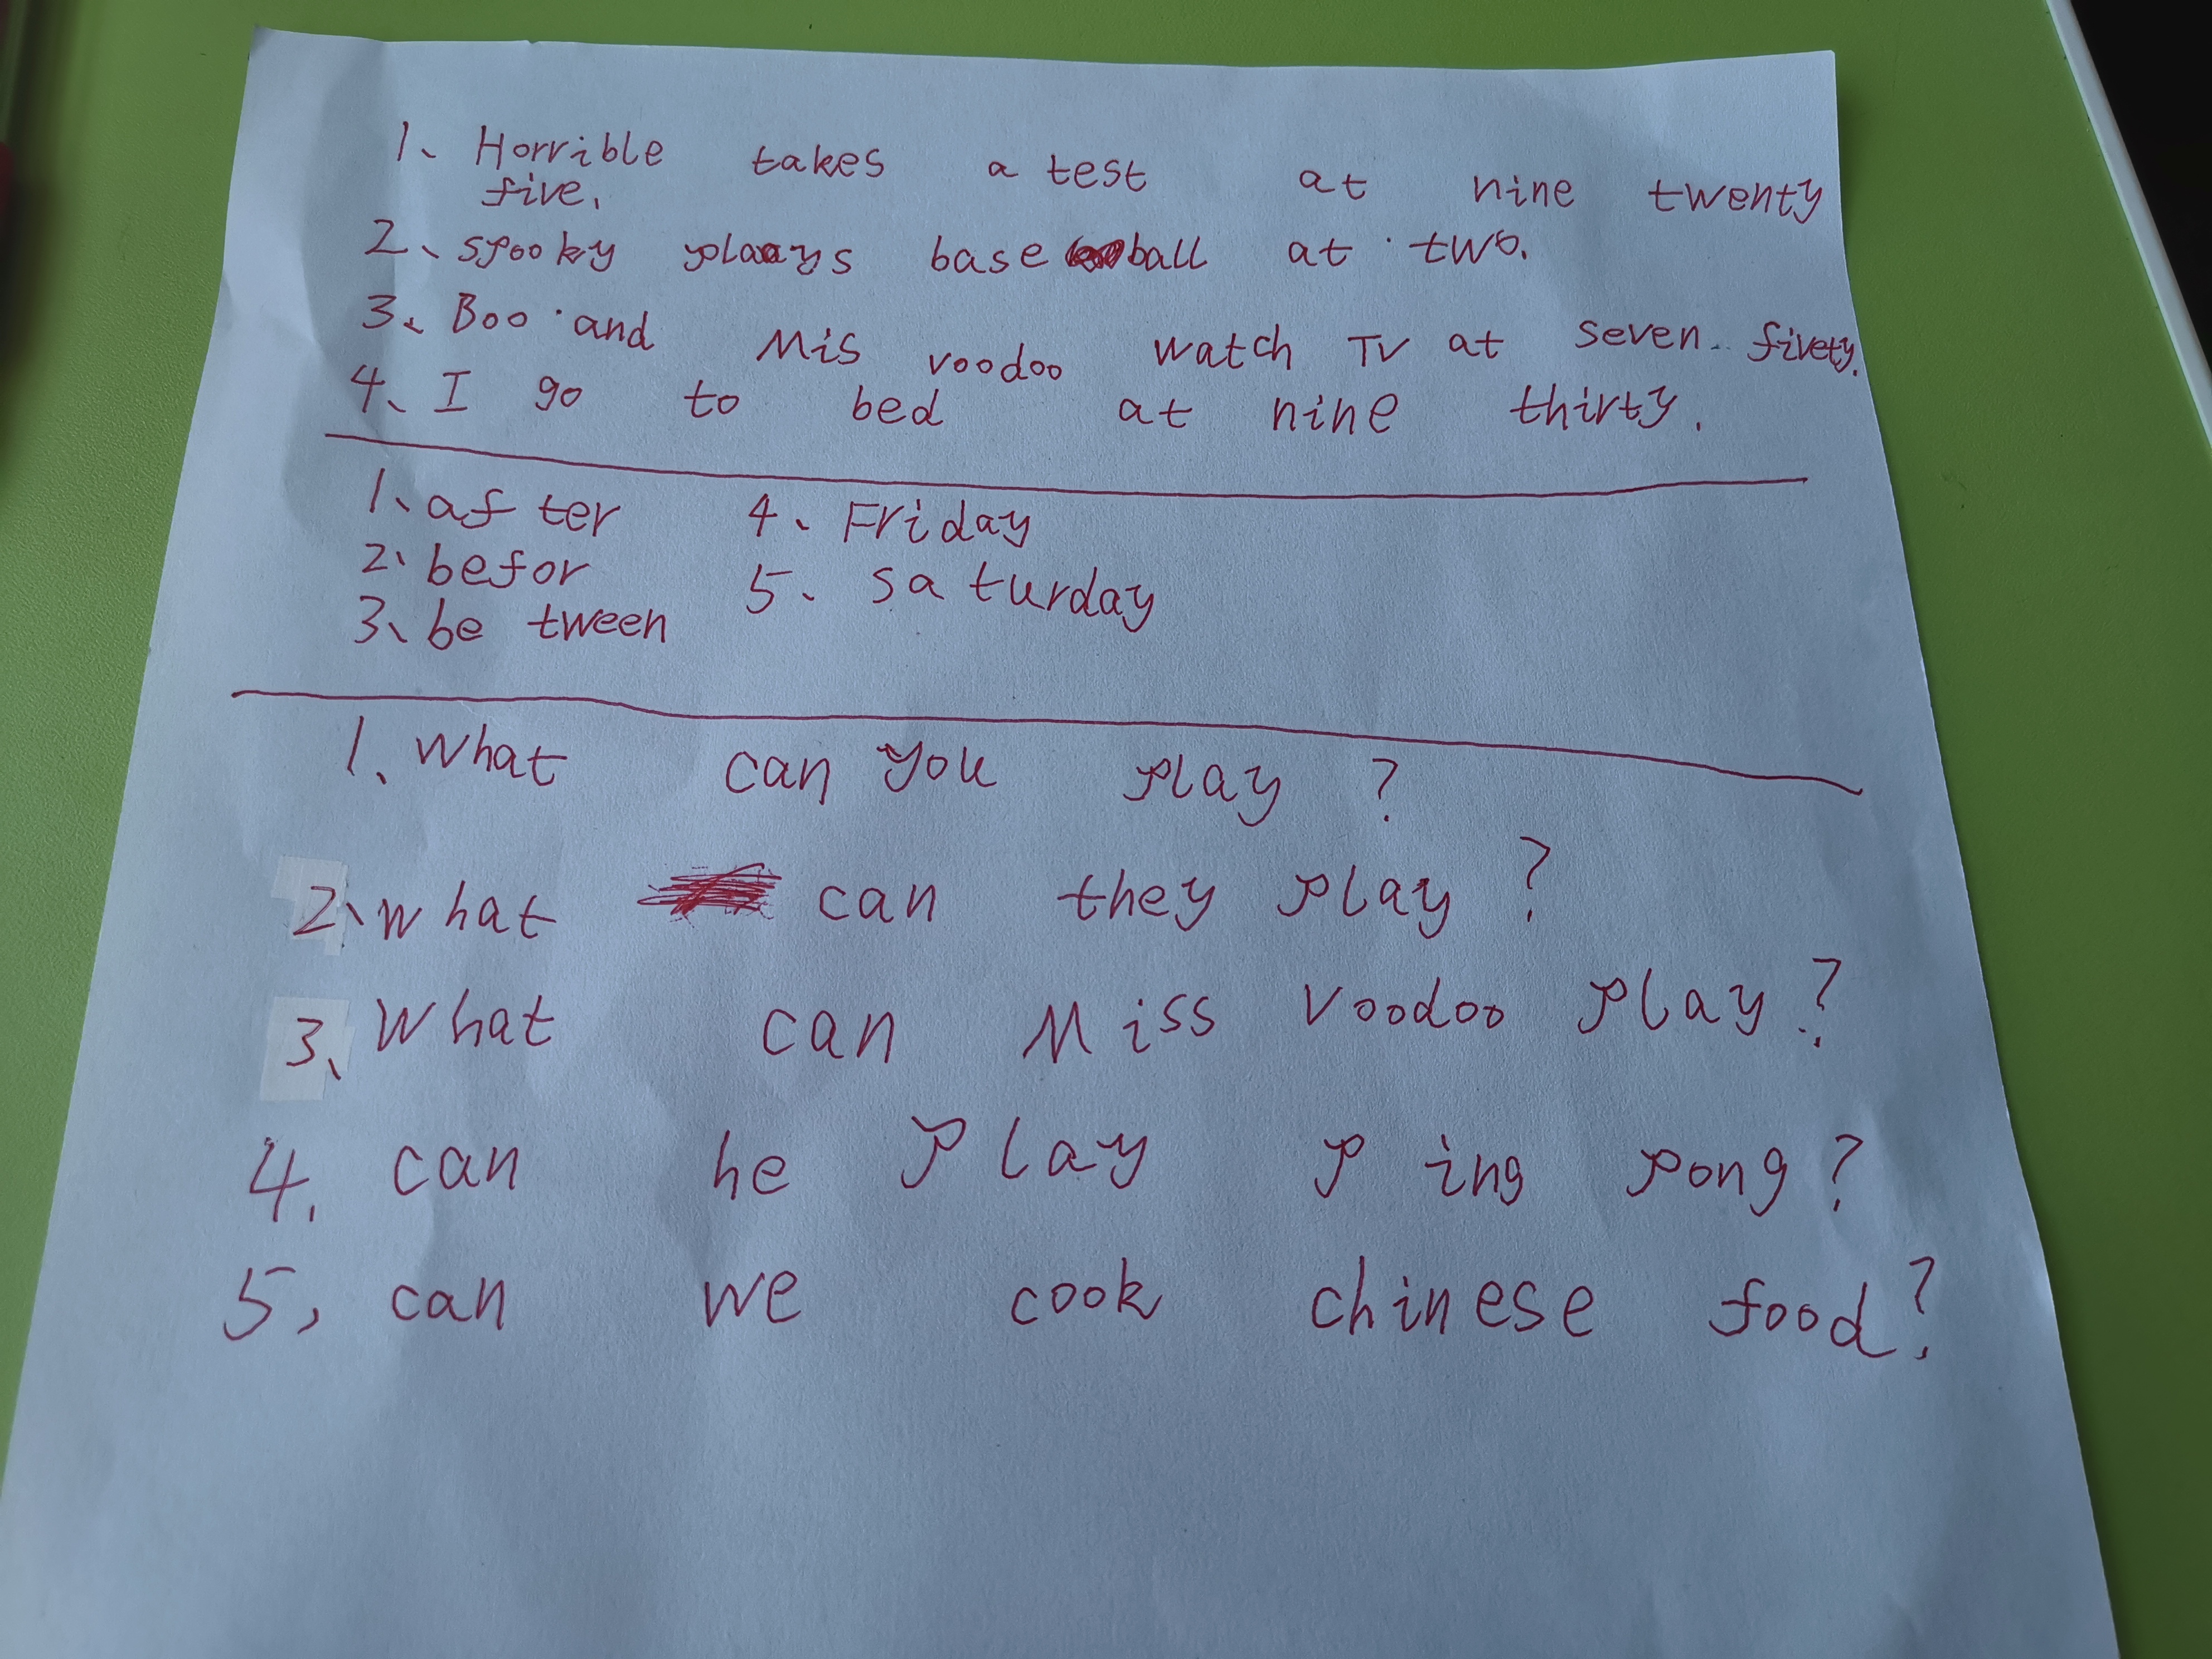 1、Horrible takes a test at nine twenty
five.
2、spooky plays baseball at two.
3、Boo and Mis voodoo watch TV at seven fivety.
4、I go to bed at nine thirty.
1、after 4、Friday
2、befor 5、saturday
3、be tween
1、What can you play ?
2、what can they play ?
3、What can Miss Voodoo play ?
4. can he play ping pong ?
5, can we cook chinese food ?